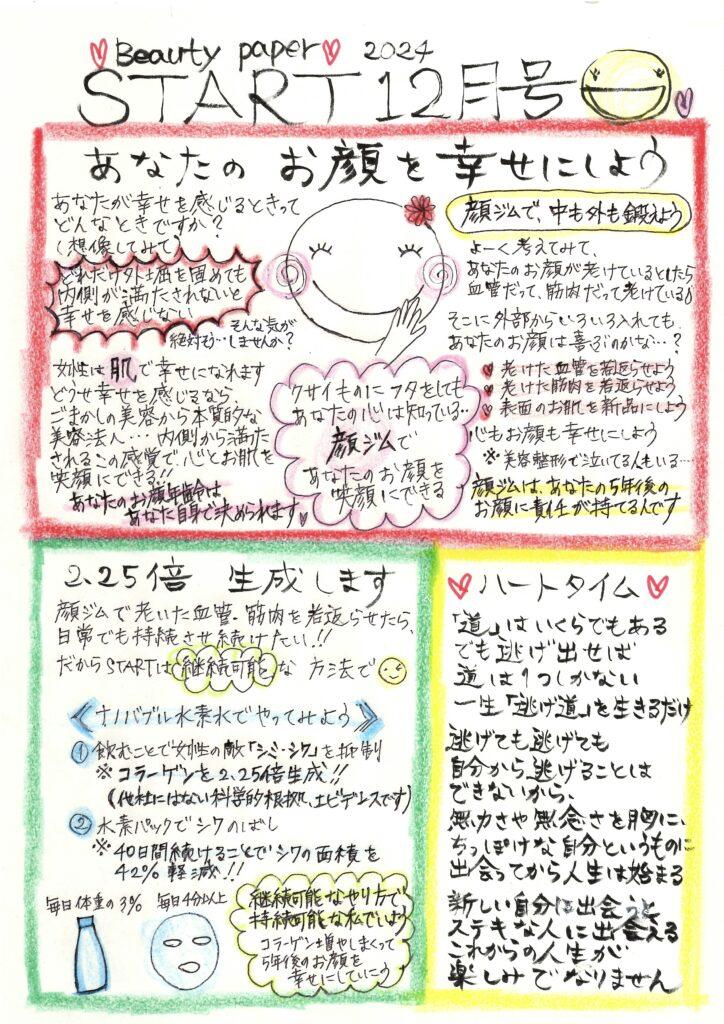 Beauty paper 2024
START 12月号
あなたの お顔を幸せにしよう
あなたが幸せを感じるときって
どんなときですか?
(想像してみて)
どれだけ外堀を固めても
内側が満たされないと
幸せを感じない
絶対そう… そんな気が
しませんか?
女性は肌で幸せになれます
どうせ幸せを感じるなら、
ごまかしの美容から本質的な
美容法へ… 内側から満た
されるこの感覚で、心とお肌を
笑顔にできる!!
あなたのお顔年齢は
あなた自身で決められます
クサイものにフタをしても
あなたの心は知っている…
顔ジムで
あなたのお顔を
笑顔にできる
顔ジムで、中も外も鍛えよう
よーく考えてみて、
あなたのお顔が老けているとしたら
血管だって、筋肉だって老けている
そこに外部からいろいろ入れても、
あなたのお顔は喜ぶのかな…?
老けた血管を若返らせよう
老けた筋肉を若返らせよう
表面のお肌を新品にしよう
心もお顔も幸せにしよう
※美容整形で泣いてる人もいる…
顔ジムは、あなたの5年後の
お顔に責任が持てるんです
2.25倍 生成します
顔ジムで老いた血管・筋肉を若返らせたら、
日常でも持続させ続けたい!!
だからSTARTは継続可能な 方法で
《ナノバブル水素水でやってみよう》
① 飲むことで女性の敵「シミ・シワ」を抑制
※コラーゲンを2.25倍生成!!
(他社にはない科学的根拠、エビデンスです)
② 水素パックでシワのばし
※40日間続けることでシワの面積を
42%軽減!!
毎日体重の3% 毎日4分以上
継続可能なやり方で
持続可能な私でいよう
コラーゲン増やしまくって
5年後のお顔を
幸せにしていこう
ハートタイム
「道」はいくらでもある
でも逃げ出せば
道は1つしかない
一生「逃げ道」を生きるだけ
逃げても逃げても
自分から逃げることは
できないから、
無力さや無念さを胸に、
ちっぽけな自分というものに
出会ってから人生は始まる
新しい自分に出会うと
ステキな人に出会える
これからの人生が
楽しみでなりません